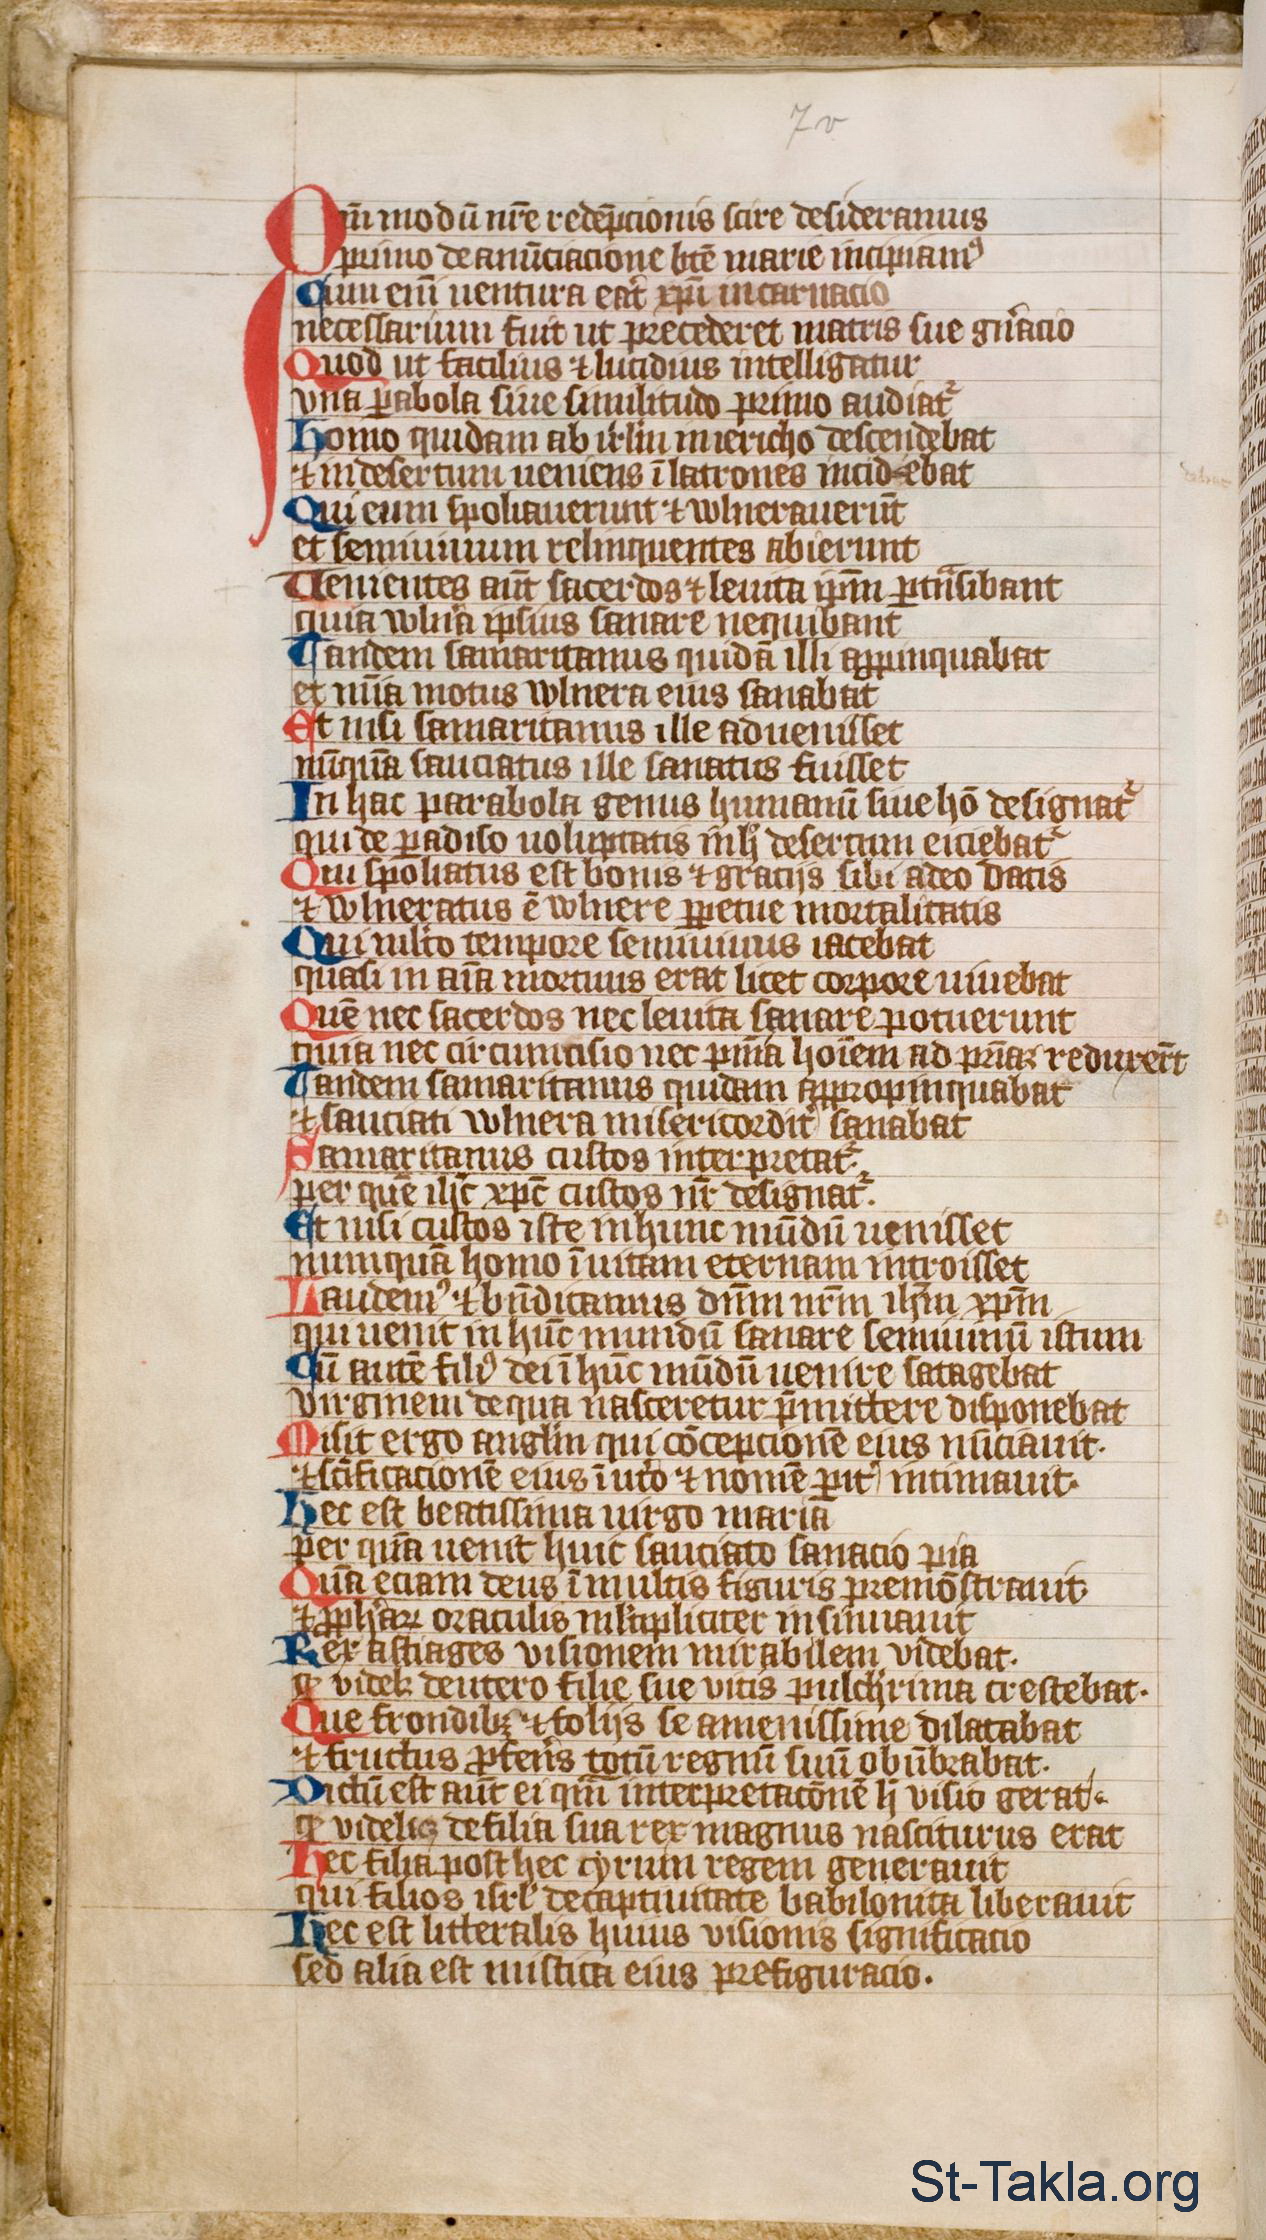 7v
Qm̄ modū nr̄e redēpcionis scire desideramus
primo de anūciacione btē marie incipiamꝰ
Cum enī uentura eāt xp̄i incarnacio
necessarium fuit ut precederet matris sue gn̄acio
Quod ut facilius ⁊ lucidius intelligatur
vna ꝑabola siue similitudo primo audiat᷑
Homo quidam ab irl̄m in iericho descendebat
⁊ in desertum ueniens ī latrones incidebat
Qui eum spoliauerunt ⁊ wlnerauerūt
et semiuiuum relinquentes abierunt
Uenientes aūt sacerdos ⁊ leuita ip̄m ꝑtn̄sibant
quia wln̄a ipsius sanare nequibant
Tandem samaritanus quidā illi apꝓinquabat
et mīa motus wlnera eius sanabat
Et nisi samaritanus ille aduenisset
nūquā sauciatus ille sanatus fuisset
In hac parabola genus humanū siue hō designat᷑
qui de ꝑadiso uoluptatis in hͨ desertum eiciebat᷑
Qui spoliatus est bonis ⁊ gracijs sibi a deo datis
⁊ wlneratus ē wlnere ꝑpetue mortalitatis
Qui mlto tempore semiuiuus iacebat
quasi in aīa mortuus erat licet corpore uiuebat
Quē nec sacerdos nec leuita sanare potuerunt
quia nec circumcisio nec hoīem ad pr̄iaꝫ reduxer̄t
Tandem samaritanus quidam appropinquabat
⁊ sauciati wlnera misericordit᷑ sanabat
Samaritanus custos interpretat᷑.
per quē ih̄c xp̄c custos nr̄ designat᷑.
Et nisi custos iste in hunc mūdū uenisset
nunquā homo ī uitam eternam introisset
Laudemꝰ ⁊ bn̄dicamus dn̄m nr̄m ih̄m xp̄m
qui uenit in hūc mundū sanare semiuiuū istum
Cū autē filꝰ dei ī hūc mūdū uenire satagebat
virginem de qua nasceretur p̄mittere disponebat
Misit ergo anglm̄ qui cōcepcionē eius nūciauit.
⁊ scīficacionē eius ī uto ⁊ nomē ꝑit᷑ intimauit.
Hec est beatissima uirgo maria
per quā uenit huic sauciato sanacio pia
Quā eciam deus ī multis figuris premōstrauit
⁊ ꝓph̄aꝝ oraculis mltipliciter insinuauit
Rex astiages visionem mirabilem videbat.
ꝙ videbꝫ de utero filie sue vitis pulchrima crescebat.
Que frondibꝫ ⁊ folijs se amenissime dilatabat
⁊ fructus ꝓfer̄s totū regnū suū obūbrabat.
Dictū est aūt ei qm̄ interpretacōnē h̄ visio gerat
ꝙ videlicꝫ de filia sua rex magnus nasciturus erat
Hec filia post hec cyrum regem generauit
qui filios isrl̄ de captiuitate babilonica liberauit
Hec est litteralis huius visionis significacio
sed alia est mistica eius prefiguracio.
St-Takla.org